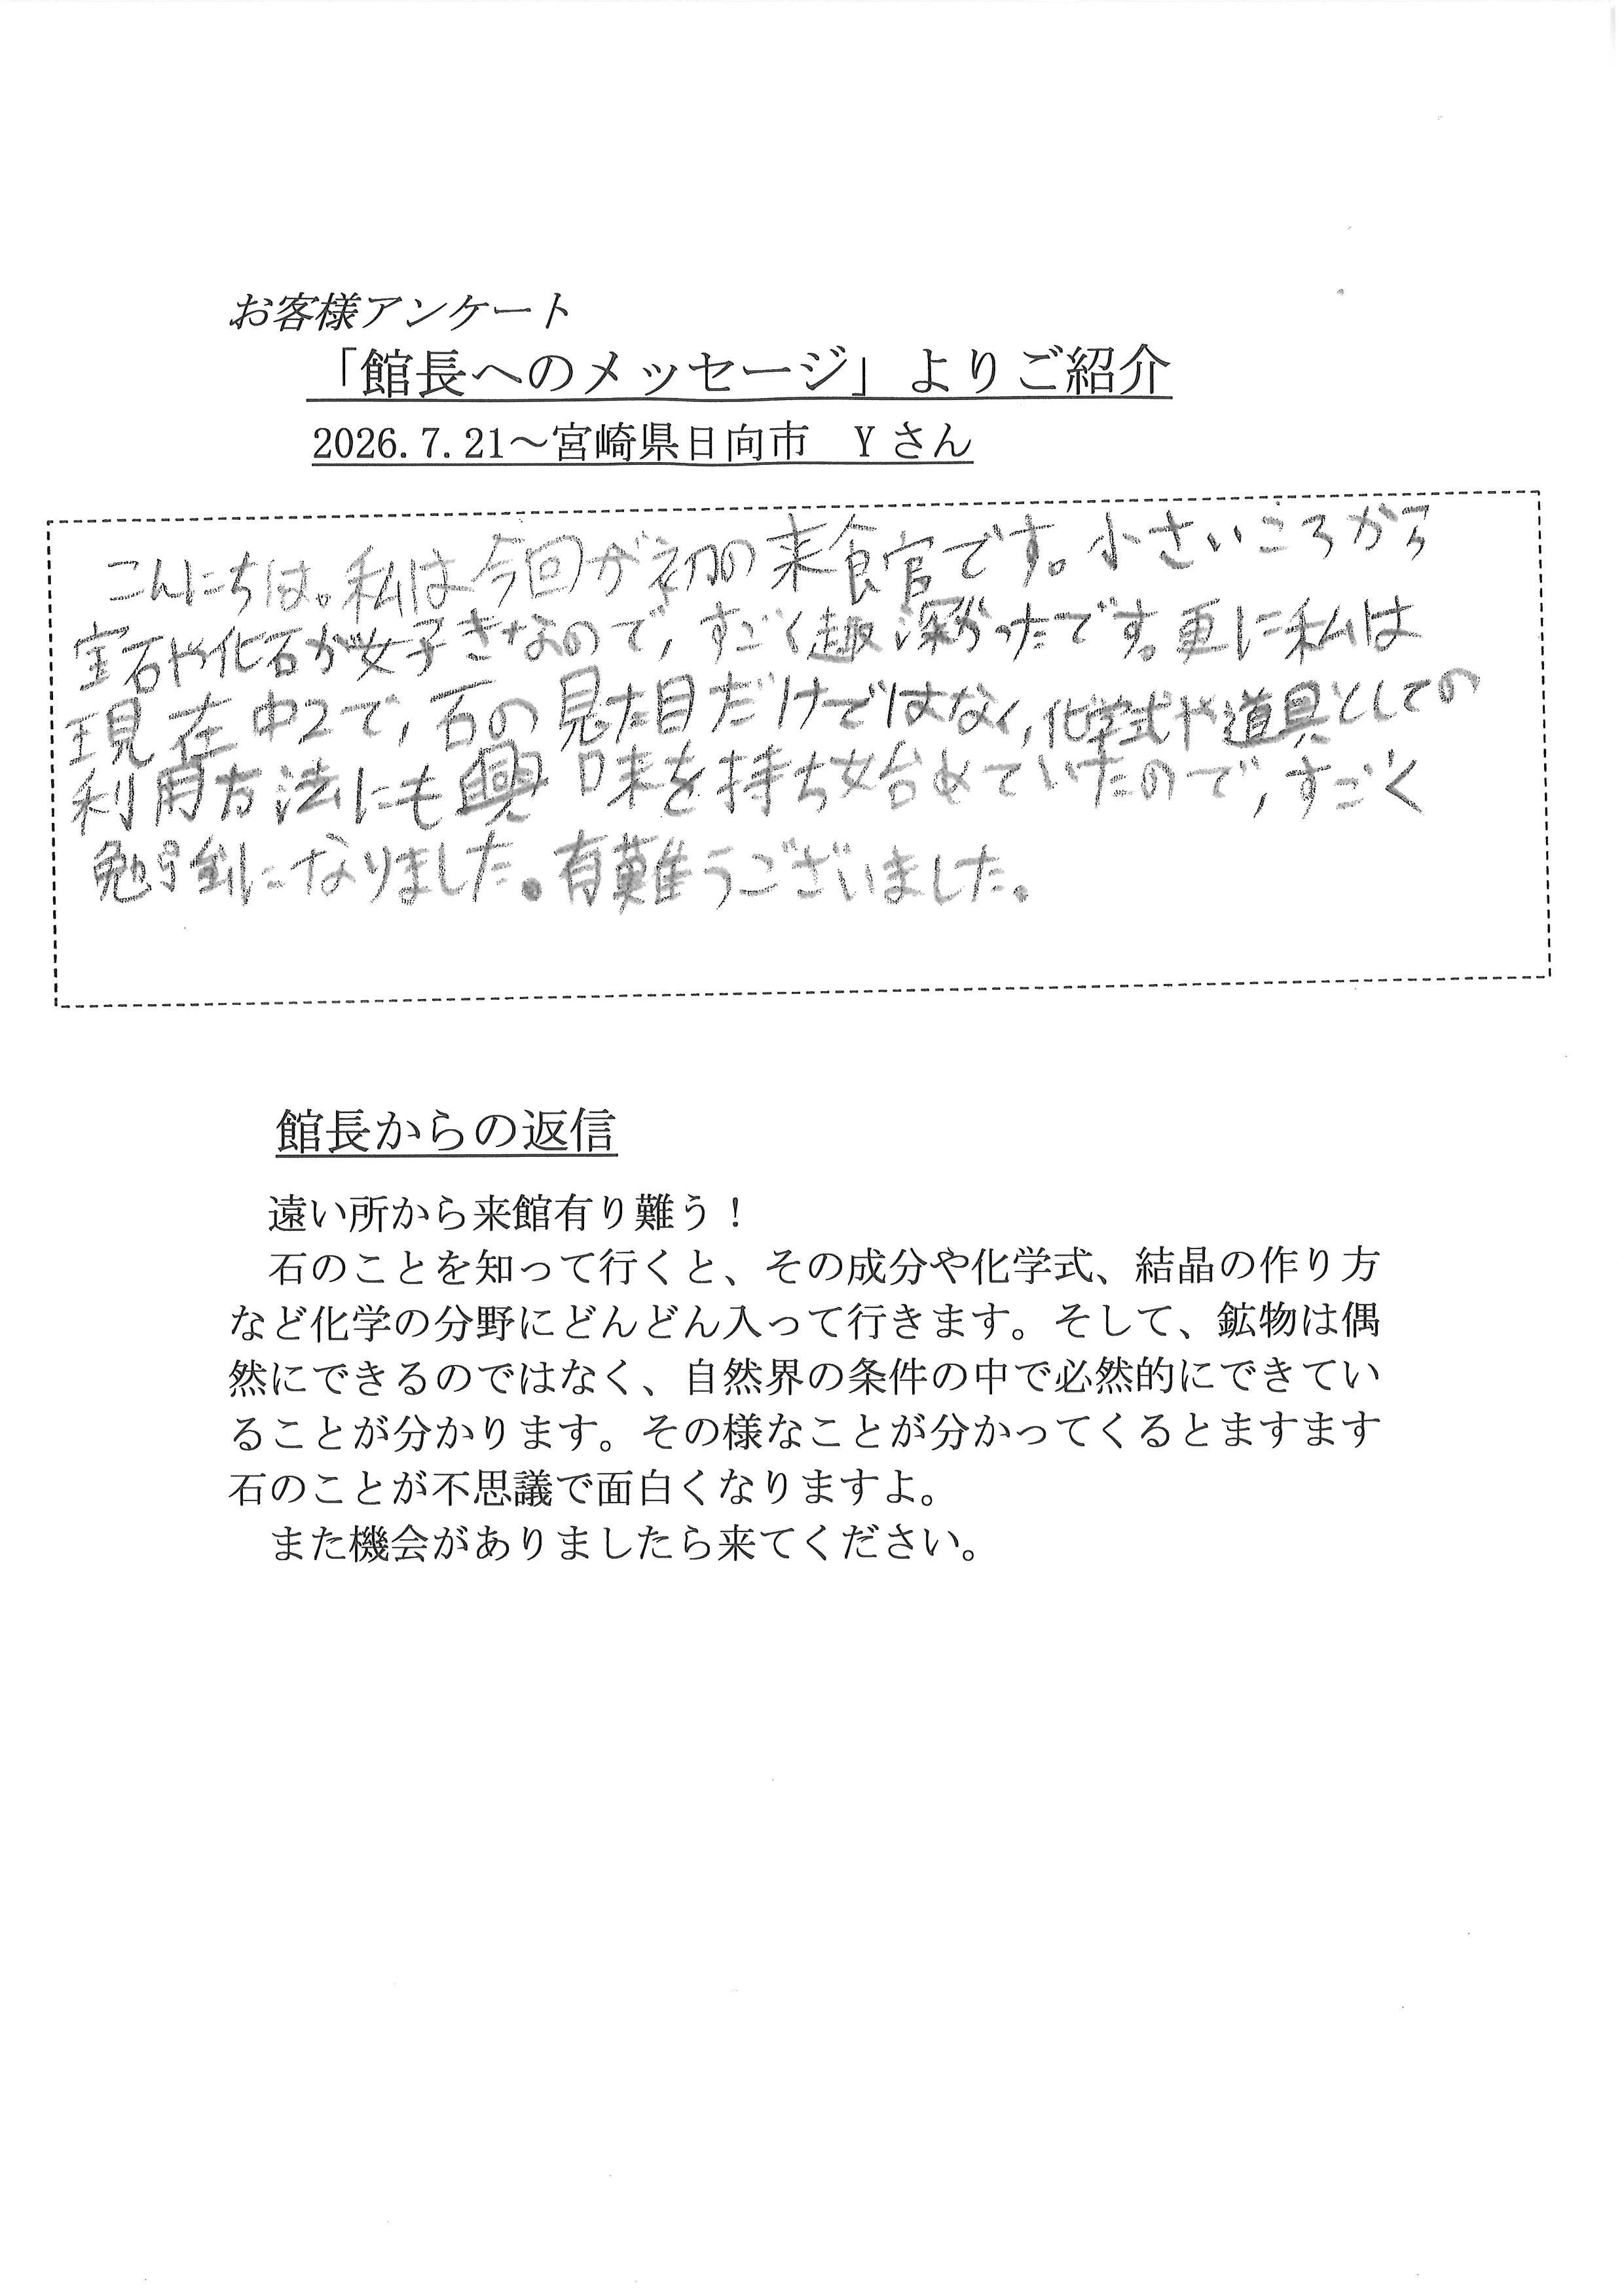 お客様アンケート
「館長へのメッセージ」よりご紹介
2026.7.21～宮崎県日向市　Yさん
こんにちは。私は今回が初の来館です。小さいころから
宝石や化石が好きなので,すごく趣深かったです。更に私は
現在中2で,石の見た目だけではなく,化学式や道具としての
利用方法にも興味を持ち始めていたので,すごく
勉強になりました。有難うございました。
館長からの返信
遠い所から来館有り難う！
石のことを知って行くと、その成分や化学式、結晶の作り方
など化学の分野にどんどん入って行きます。そして、鉱物は偶
然にできるのではなく、自然界の条件の中で必然的にできてい
ることが分かります。その様なことが分かってくるとますます
石のことが不思議で面白くなりますよ。
また機会がありましたら来てください。